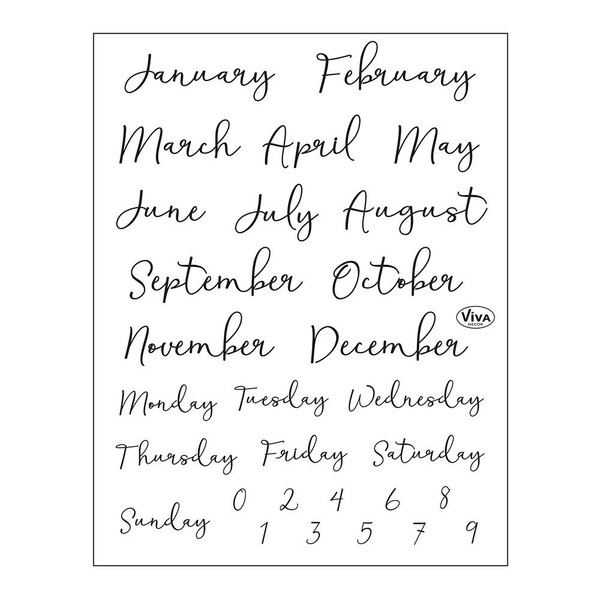 January February
March April May
June July August
September October
VIVA
DECOR
November December
Monday Tuesday Wednesday
Thursday Friday Saturday
Sunday
0 2 4 6 8
1 3 5 7 9